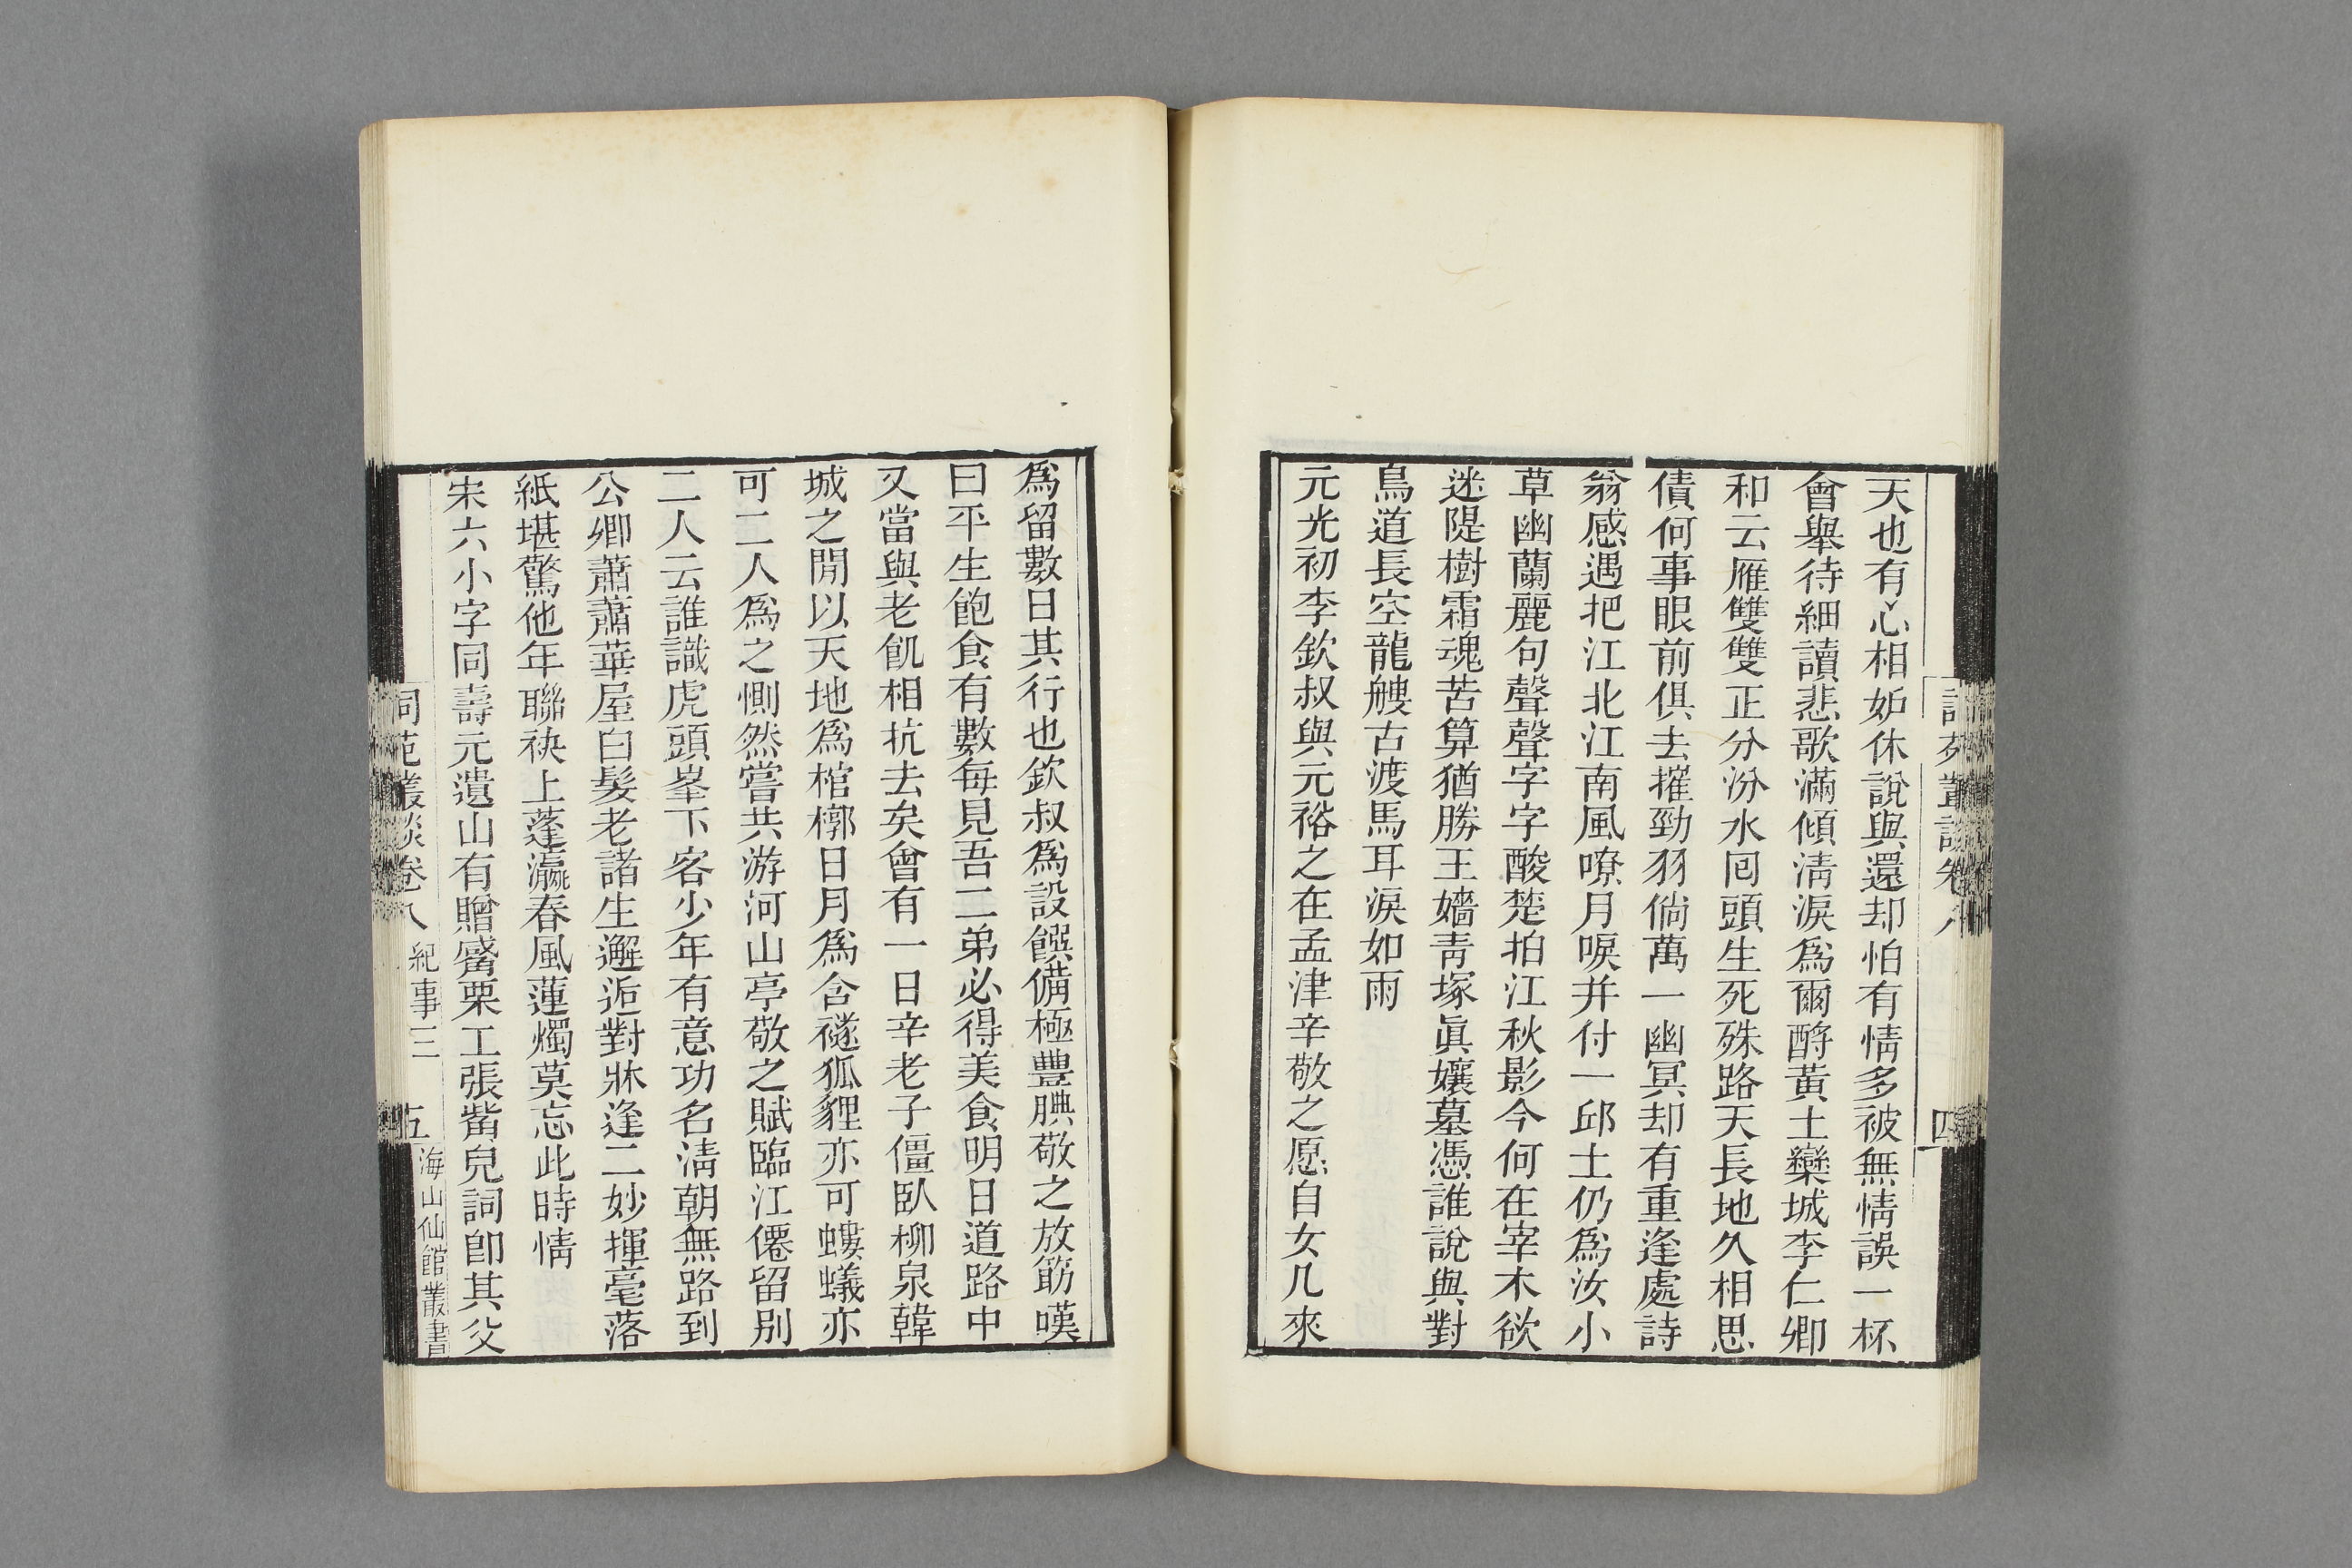 天也有心相妒休說與還却怕有情多被無情誤一杯
會舉待細讀悲歌滿傾淸淚爲爾酹黃土欒城李仁卿
和云雁雙雙正分汾水囘頭生死殊路天長地久相思
債何事眼前俱去摧勁羽倘萬一幽冥却有重逢處詩
翁感遇把江北江南風嘹月唳并付一邱土仍爲汝小
草幽蘭麗句聲聲字字酸楚拍江秋影今何在宰木欲
迷隄樹霜魂苦算猶勝王嬙靑塚眞孃墓憑誰說與對
鳥道長空龍艘古渡馬耳淚如雨
元光初李欽叔與元裕之在孟津辛敬之愿自女几來
詞苑叢談卷八
四
爲留數日其行也欽叔爲設饌備極豐腆敬之放筯嘆
曰平生飽食有數每見吾二弟必得美食明日道路中
又當與老飢相抗去矣會有一日辛老子僵臥柳泉韓
城之閒以天地爲棺槨日月爲含襚狐貍亦可螻蟻亦
可二人爲之惻然嘗共游河山亭敬之賦臨江僊留別
二人云誰識虎頭峯下客少年有意功名淸朝無路到
公卿蕭蕭華屋白髮老諸生邂逅對牀逢二妙揮毫落
紙堪驚他年聯袂上蓬瀛春風蓮燭莫忘此時情
宋六小字同壽元遺山有贈觱栗工張觜兒詞卽其父
詞苑叢談卷八 紀事三
五
海山仙館叢書